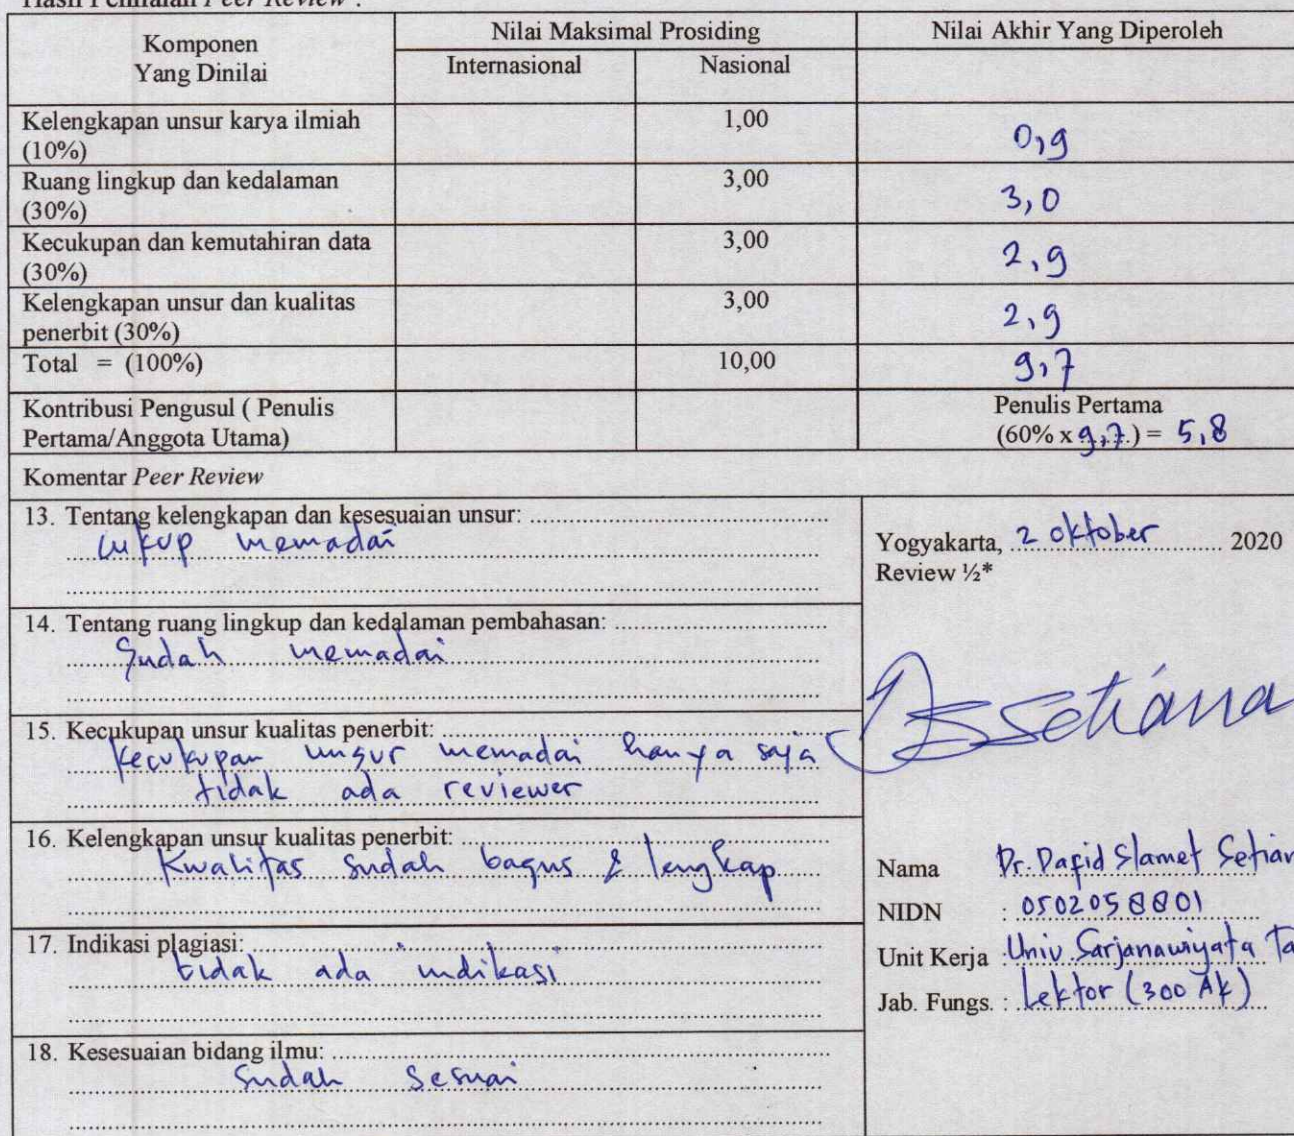 Hasil Penilaian Peer Review :
Komponen
Yang Dinilai
Nilai Maksimal Prosiding
Nilai Akhir Yang Diperoleh
Internasional
Nasional
Kelengkapan unsur karya ilmiah
(10%)
1,00
0,9
Ruang lingkup dan kedalaman
(30%)
3,00
3,0
Kecukupan dan kemutahiran data
(30%)
3,00
2,9
Kelengkapan unsur dan kualitas
penerbit (30%)
3,00
2,9
Total = (100%)
10,00
9,7
Kontribusi Pengusul ( Penulis
Pertama/Anggota Utama)
Penulis Pertama
(60% x 9,7.) = 5,8
Komentar Peer Review
13. Tentang kelengkapan dan kesesuaian unsur:
cukup memadai
14. Tentang ruang lingkup dan kedalaman pembahasan:
Sudah memadai
15. Kecukupan unsur kualitas penerbit:
Kecukupan unsur memadai hanya saja
tidak ada reviewer
16. Kelengkapan unsur kualitas penerbit:
Kwalitas sudah bagus & lengkap
17. Indikasi plagiasi:
tidak ada indikasi
18. Kesesuaian bidang ilmu:
Sudah Sesuai
Yogyakarta, 2 oktober 2020
Review ½*
Setiana
Nama Dr. Dafid Slamet Setian
NIDN : 0502058801
Unit Kerja : Univ Sarjanawiyata Ta
Jab. Fungs. : Lektor (300 Ak)